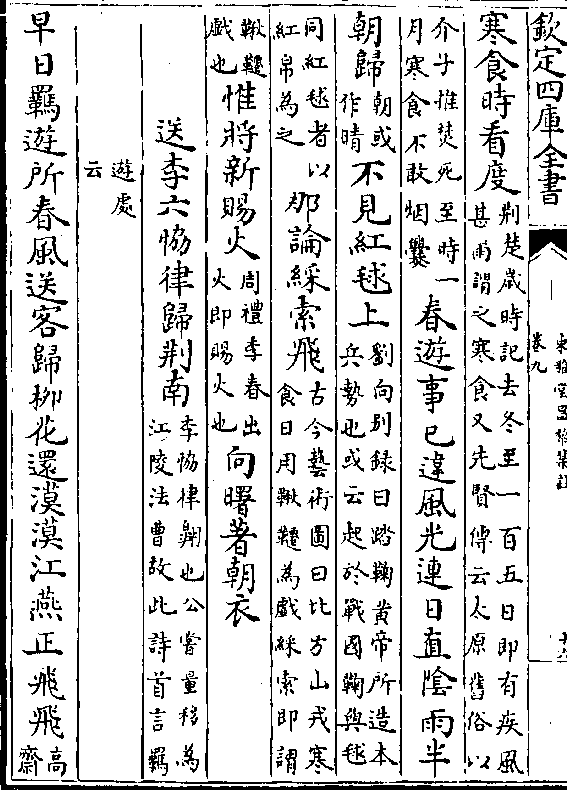 欽定四庫全書
東雅堂昌黎集註
卷九
寒食時看度荆楚歲時記去冬至一百五日即有疾風甚雨謂之寒食又先賢傳云太原舊俗以
介子推焚死至時一月寒食不敢烟爨春遊事已違風光連日直陰雨半
朝歸朝或作晴不見紅毬上劉向别録曰踏鞠黄帝所造本兵勢也或云起於戰國鞠與毬
同紅毬者以紅帛為之那論綵索飛古今藝術圖曰比方山戎寒食日用鞦韆為戲綵索即謂
鞦韆戲也惟將新賜火周禮季春出火即賜火也向曙著朝衣
送李六協律歸荆南李協律翺也公嘗量移為江陵法曹故此詩首言羈
遊處云
早日羈遊所春風送客歸柳花還漠漠江燕正飛飛高齋